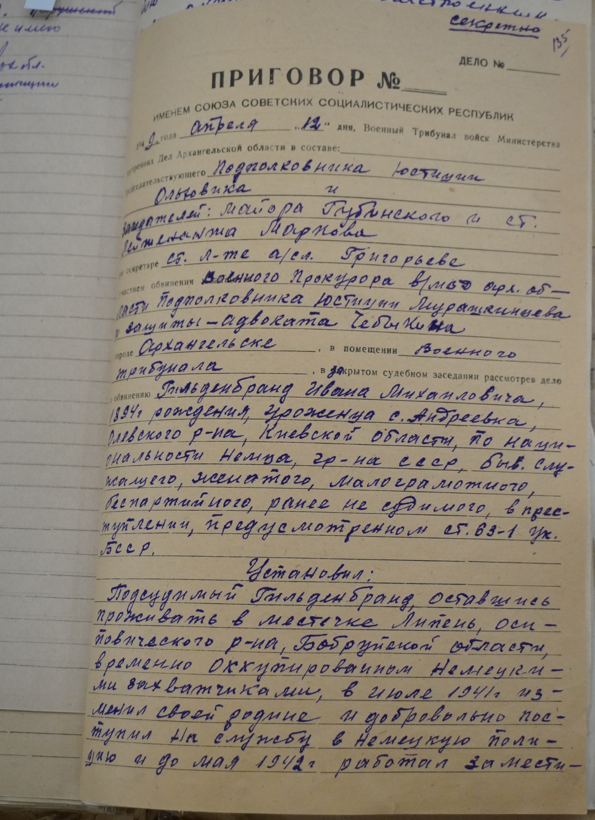 секретно
135
ДЕЛО №
ПРИГОВОР №
ИМЕНЕМ СОЮЗА СОВЕТСКИХ СОЦИАЛИСТИЧЕСКИХ РЕСПУБЛИК
194 года апреля „12" дня, Военный Трибунал войск Министерства
Внутренних Дел Архангельской области в составе:
председательствующего Подполковника юстиции
Ольховика и
заседателей: майора Губинского и ст.
лейтенанта Маркова
при секретаре ст. л-те а/сл. Григорьеве
с участием обвинения Военного Прокурора в/мвд арх. об-
ласти подполковника юстиции Мурашкинцева
и защиты – адвоката Чебыкина
в городе Архангельске, в помещении Военного
трибунала, в закрытом судебном заседании рассмотрев дело
по обвинению Гильденбранд Ивана Михайловича,
1894г рождения, уроженца с. Андреевка,
Олевского р-на, Киевской области, по наци-
ональности Немца, гр-на ссср, быв. слу-
жащего, женатого, малограмотного,
беспартийного, ранее не судимого, в прес-
туплении, предусмотренном ст. 63-1 Ук.
БССР.
Установил:
Подсудимый Гильденбранд, оставшись
проживать в местечке Липень, оси-
повического р-на, Бобруйской области,
временно оккупированном Немецки-
ми захватчиками, в июле 1941г из-
менил своей родине и добровольно пос-
тупил на службу в Немецкую поли-
цию и до мая 1942г работал замести-